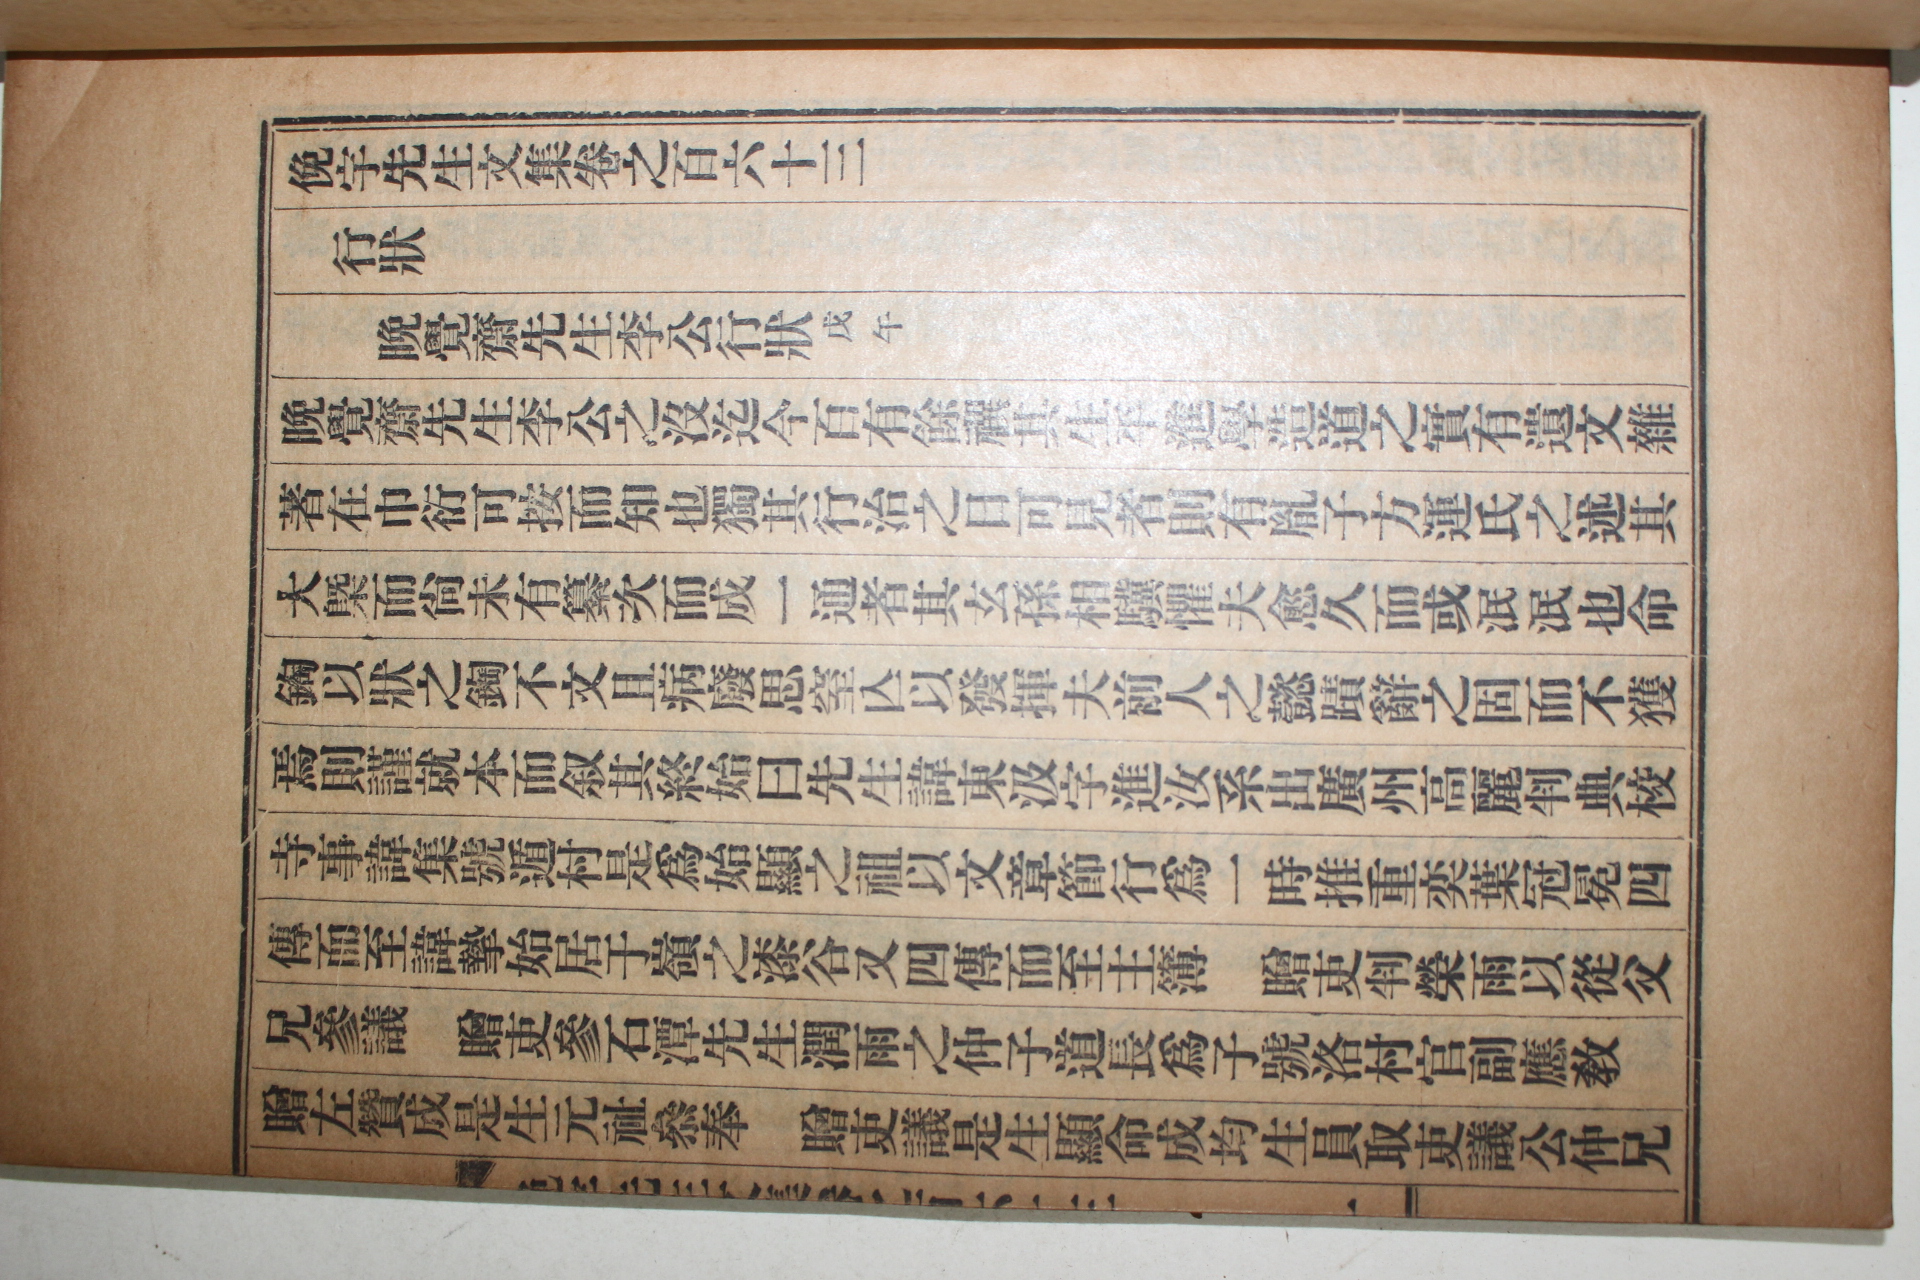 俛宇先生文集卷之百六十三
行狀
晩覺齋先生李公行狀 戊午
晩覺齋先生李公之沒迄今百有餘禩其生平進學造道之實有遺文雜
著在巾衍可按而知也獨其行治之目可見者則有胤子方運氏之述其
大槩而尙未有纂次而成一通者其玄孫相驥懼夫愈久而或泯泯也命
鋾以狀之鋾不文且病廢思窒亾以發揮夫前人之懿蹟辭之固而不獲
焉則謹就本而叙其終始曰先生諱東汲字進汝系出廣州高麗判典校
寺事諱集號遁村是爲始顯之祖以文章節行爲一時推重奕葉冠冕四
傳而至諱摯始居于嶺之漆谷又四傳而至主簿 贈吏判榮雨以從父
兄參議 贈吏參石潭先生潤雨之仲子道長爲子號洛村官副應敎
贈左贊成是生元祉參奉 贈吏議是生顯命成均生員取吏議公仲兄